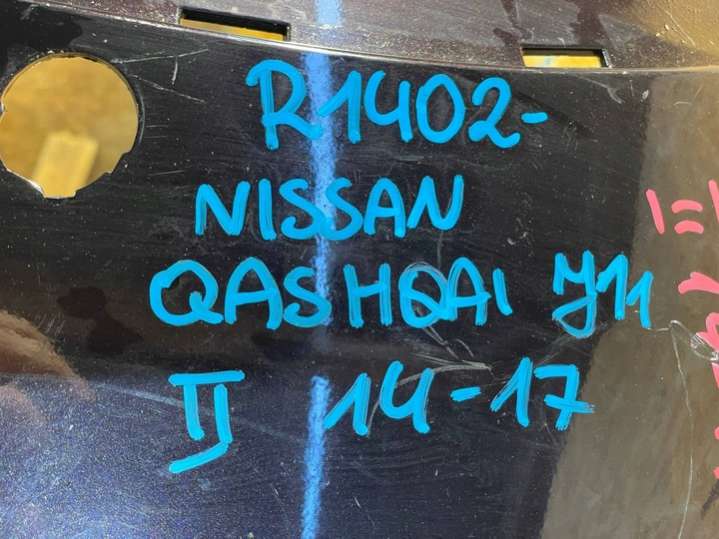 R1402-
NISSAN
QASHQAI J11
II 14-17